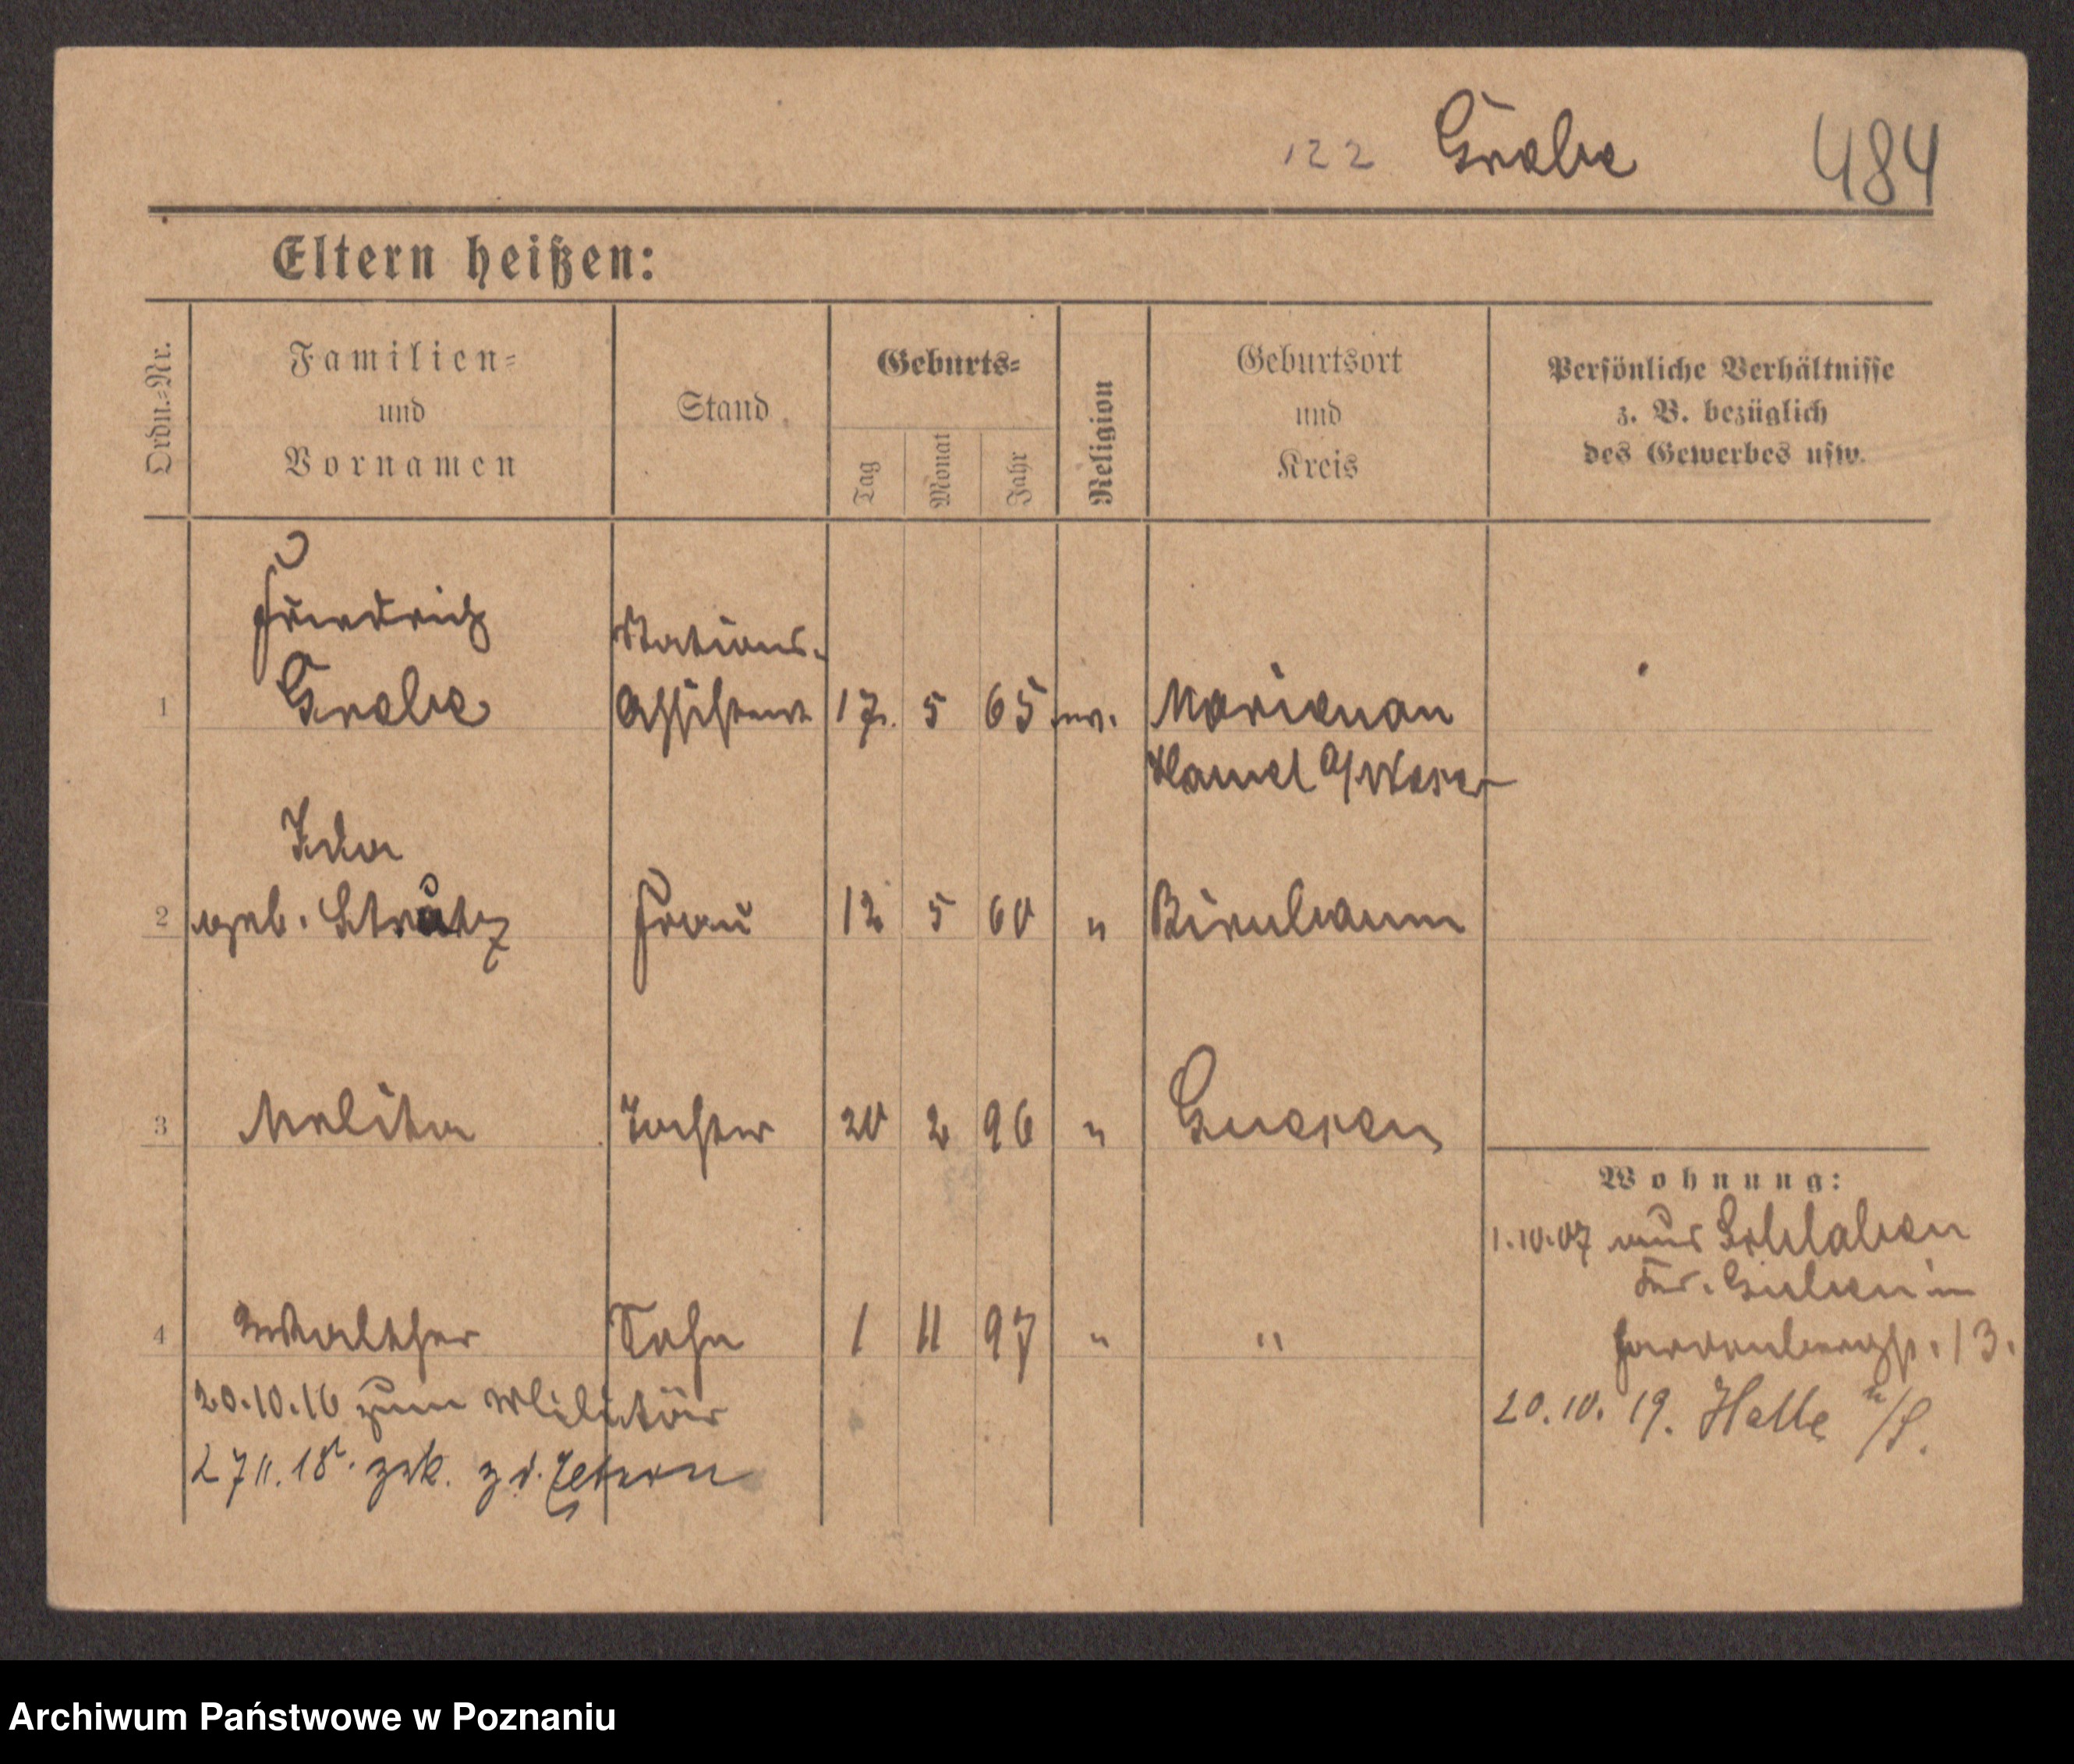 122 Grabe 484
Eltern heißen:
Ordn.=Nr.
Familien=
und
Vornamen
Stand
Geburts=
Tag
Monat
Jahr
Religion
Geburtsort
und
Kreis
Persönliche Verhältnisse
z. B. bezüglich
des Gewerbes usw.
Friedrich
Stations-
1 Grabe Assistent 17. 5 65 ev. Marienau
Hameln a/Weser
Ida
2 geb. Strutz Frau 12 5 60 " Birnbaum
3 Melitta Tochter 20 2 96 " Gnesen
Wohnung:
1.10.07 aus
4 Walther Sohn 1 11 97 " "
13.
20.10.16 zum Militär
20.10.19. Halle a/S.
27 11. 18. zrk. z d. Eltern
Archiwum Państwowe w Poznaniu